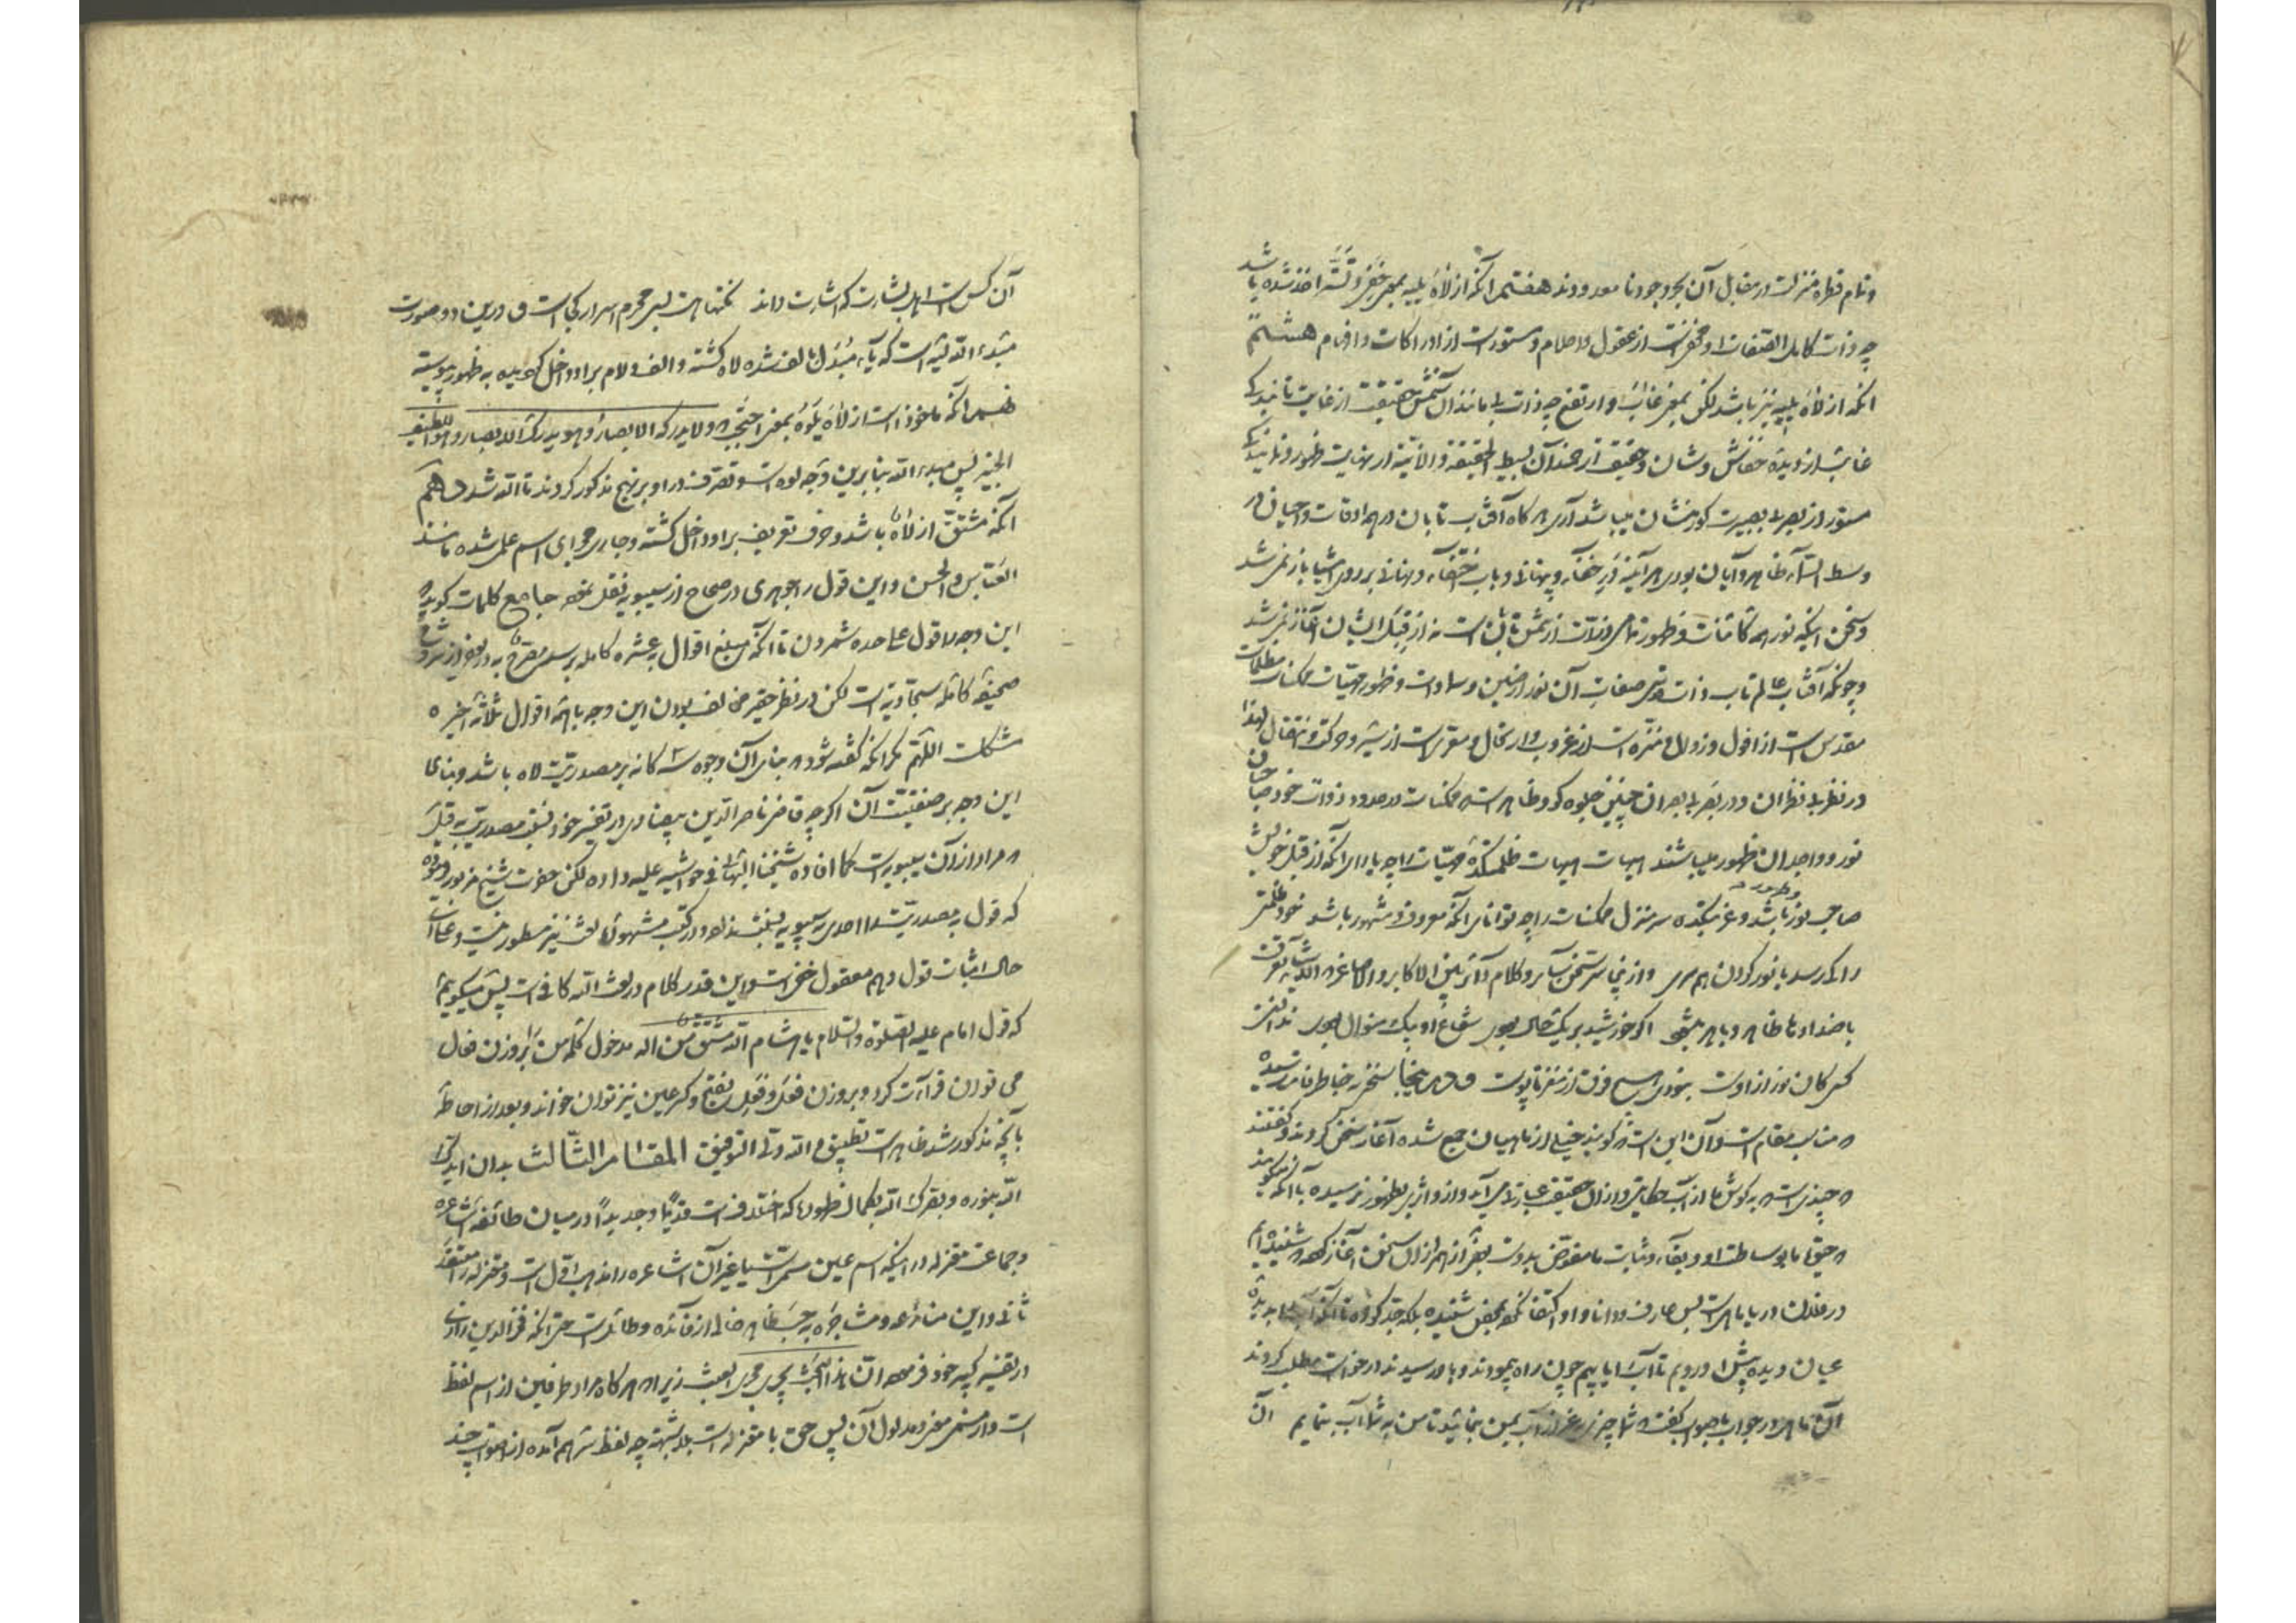 و تمام قطره منزلت در مقابل آن بحر وجود نامعدودند هفتم آنکه از لاه یلیه بمعنی خفی و تستر اخذ شده باشد
چه ذات کامل الصفات او مخفی است از عقول و احلام و مستور است از ادراکات و افهام هشتم
آنکه از لاه یلیه نیز باشد لکن بمعنی غاب و ارتفع چه ذات بی مانند آن شمس حقیقت از غایت تابندگی
غایب از دیده خفاش وشان و حقیقت ارجمند آن بسیط الحقیقة و الانیة از نهایت ظهور و نمایندگی
مستور از بصر بی بصیرت کورمنشان میباشد آری هرگاه آفتاب تابان در همه اوقات و احیان در
وسط السماء ظاهر و آیان بودی هر آینه در خفاء و پنهانی و باب اختفاء و نهانی بر روی اشیا باز نمی شد
و سخن اینکه نور همه کائنات و ظهور تمامی ذرات از شمس تابان است نه از قبل ایشان آغاز نمی شد
و چونکه آفتاب عالم تاب ذات قدسی صفات آن نور ارضین و سماوات و ظهور مهیات ممکنات مظلمات
مقدس است از افول و زوال و منزه است از غروب و ارتحال و معری است از سیر و حرکت و انتقال لهذا
در نظر بی نظران و در بصر بی بصران چنین جلوه گر و ظاهر است که ممکنات در حدود ذوات خود صاحبان
نور و واجدان ظهور میباشند هیهات هیهات ظلمتکده مهیات را چه یارای آنکه از قبل خویش
صاحب نور باشد و غربتکده سرمنزل ممکنات را چه توانای آنکه معروف و مشهور باشد خود ظلمت
را کی رسد با نور کردن همسری و از پنجا سر سخن سایر و کلام دائر بین الاکابر و الاصاغر که الاشیاء تعرف
باضدادها ظاهر و باهر میشود اگر خورشید بر یک حال بودی شعاع او بیک منوال بودی ندانستی
کسی کان نور از اوست نبودی هیچ فرق از مغز تا پوست و در اینجا سخنی به خاطر فاتر رسیده
که مناسب مقام است و آن این است که گویند خیلی از ماهیان جمع شده آغاز سخن کردند و گفتند
که چندی است که به گوش ما از آب حکایتی و از آن حقیقت عبارتی می آید و از او اثری بظهور نرسیده با آنکه میگویند
که حیوة ما بوساطت او و بقاء و ثبات ما مفوض بدوست بعضی از اینها از آن سخن آغاز کرد که شنیده ایم
در فلان دریا ماهی است بس عارف و دانا و او اکتفا نکرده بمحض شنیده بلکه جد کرده تا آنکه آب را بدیده
عیان دیده پیش او رویم تا آب را یابیم چون راه پیمودند و باو رسیدند درخواست مطلب کردند
آن ماهی در جواب با صواب گفت شما چیزی غیر از آب بمن بنمائید تا من به شما آب بنمایم آن
آن کس است اهل بشارت که اشارت داند نکته ها هست بسی محرم اسرار کجاست و درین دو صورت
مبدء الله لیه است که یاء مبدل بالف شده لاه گشته و الف و لام بر او داخل گردیده به ظهور پیوسته
نهم آنکه ماخوذ است از لاه یلوه بمعنی احتجب و لا یدرکه الابصار و هو یدرک الابصار و هو اللطیف
الخبیر پس مبدء الله بنا برین وجه لوه است و تصرف در او بر نهج مذکور کردند تا الله شد دهم
آنکه مشتق از لاه باشد و حرف تعریف بر او داخل گشته و جاری مجرای اسم علم شده مانند
العباس و الحسن و این قول را جوهری در صحاح از سیبویه نقل نموده جامع کلمات گوید که
این وجه را قول علی حده شمردن تا آنکه مبلغ اقوال به عشره کامله برسد مصرح به در بعضی از شروح
صحیفه کامله سجادیه است لکن در نظر حقیر مخالف بودن این وجه با همه اقوال ثلاثه اخیره
مشکل است اللهم مگر آنکه گفته شود که بنای آن وجوه سه گانه بر مصدریت لاه باشد و بنای
این وجه بر صفتیت آن اگرچه قاضی ناصر الدین بیضاوی در تفسیر خود نسبت مصدریت به قیل
که مراد از آن سیبویه است کما افاده شیخنا البهائی فی حواشیه علیه داده لکن حضرت شیخ مزبور فرموده
که قول به مصدریت را احدی به سیبویه نسبت نداده و در کتب مشهوره لغت نیز مسطور نیست و علی ای
حال اثبات قول دهم معقول خفی است و این قدر کلام در لفظ الله کافی است پس میگویم
که قول امام علیه الصلوة و السلام یا هشام الله مشتق من اله مدخول کلمه من را بر وزن فعال
می توان قرائت کرد و بر وزن فعل و فعل بفتح و کسر عین نیز توان خواند و بعد از احاطه
بآنچه مذکور شد ظاهر است تطبیق و الله ولی التوفیق المقام الثالث بدان ایدک
الله بنوره و بصرک الله بکمال ظهوره که اختلاف است قدیما و جدیدا در میان طائفه اشاعره
و جماعت معتزله در اینکه اسم عین مسمی است یا غیر آن اشاعره را مذهب اول است و معتزله را معتقد
ثانی و این منازعه و مشاجره به حسب ظاهر خالی از فائده و طائل است حتی آنکه فخر الدین رازی
در تفسیر کبیر خود فرموده ان هذا البحث یجری مجری العبث زیرا که هرگاه مراد طرفین از اسم لفظ
است و از مسمی معنی و مدلول آن پس حق با معتزله است بلا شبهه چه لفظ فراهم آمده از اصوات چند